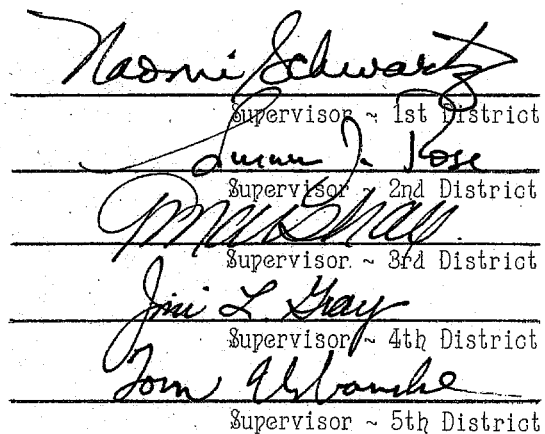 Naomi Schwartz
Supervisor ~ 1st District
Susan J. Rose
Supervisor ~ 2nd District
Supervisor ~ 3rd District
Joni L. Gray
Supervisor ~ 4th District
Tom Urbanske
Supervisor ~ 5th District